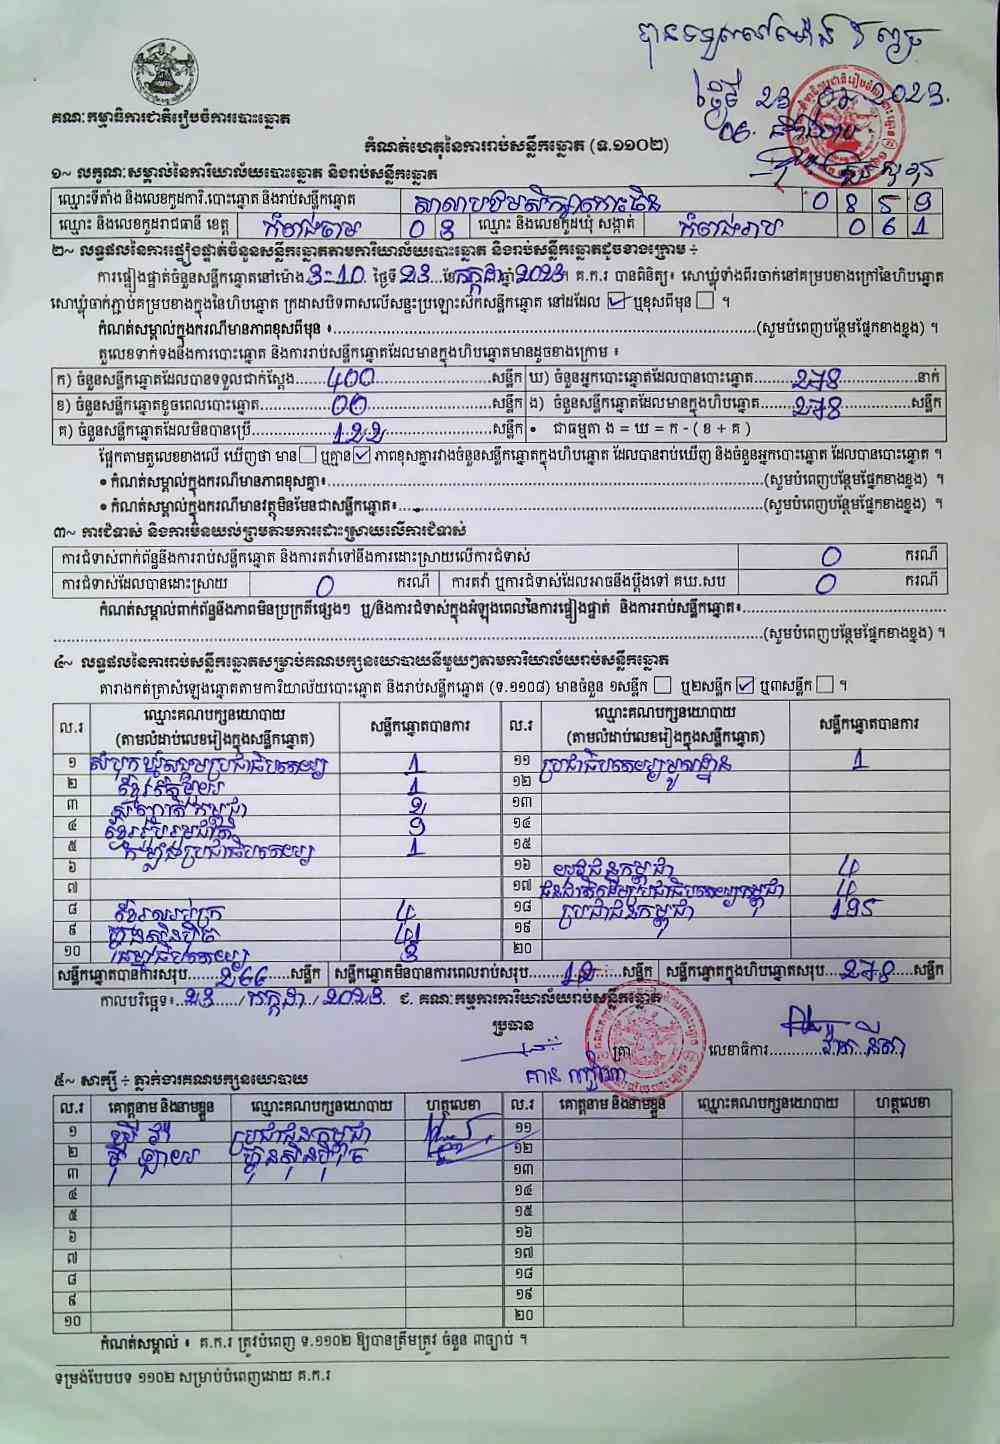 បានទទួលនៅម៉ោង
ថ្ងៃទី 23 2023.
06.
គណៈកម្មាធិការជាតិរៀបចំការបោះឆ្នោត
កំណត់ហេតុនៃការរាប់សន្លឹកឆ្នោត (ទ.១១០២)
១~ លក្ខណៈសម្គាល់នៃការិយាល័យបោះឆ្នោត និងរាប់សន្លឹកឆ្នោត
ឈ្មោះទីតាំង និងលេខកូដការិ.បោះឆ្នោត និងរាប់សន្លឹកឆ្នោត សាលាបឋមសិក្សាកោះធិន 0 8 5 9
ឈ្មោះ និងលេខកូដរាជធានី ខេត្ត កំពង់ចាម 0 3 ឈ្មោះ និងលេខកូដឃុំ សង្កាត់ កំពង់រាប 0 6 1
២~ លទ្ធផលនៃការផ្ទៀងផ្ទាត់ចំនួនសន្លឹកឆ្នោតតាមការិយាល័យបោះឆ្នោត និងរាប់សន្លឹកឆ្នោតដូចខាងក្រោម ÷
ការផ្ទៀងផ្ទាត់ចំនួនសន្លឹកឆ្នោតនៅម៉ោង 3:10 ថ្ងៃទី 23 ខែ កក្កដា ឆ្នាំ 2023 ។ គ.ក.រ បានពិនិត្យ៖ សោឃ្លុំទាំងពីរចាក់នៅគម្របខាងក្រៅនៃហិបឆ្នោត
សោឃ្លុំចាក់ភ្ជាប់គម្របខាងក្នុងនៃហិបឆ្នោត ក្រដាសបិទពាសលើសន្ទះប្រឡោះស៊កសន្លឹកឆ្នោត នៅដដែល ☑ ឬខុសពីមុន ☐ ។
កំណត់សម្គាល់ក្នុងករណីមានភាពខុសពីមុន ៖ (សូមបំពេញបន្ថែមផ្នែកខាងខ្នង) ។
តួលេខទាក់ទងនឹងការបោះឆ្នោត និងការរាប់សន្លឹកឆ្នោតដែលមានក្នុងហិបឆ្នោតមានដូចខាងក្រោម ៖
ក) ចំនួនសន្លឹកឆ្នោតដែលបានទទួលជាក់ស្តែង 400 សន្លឹក ឃ) ចំនួនអ្នកបោះឆ្នោតដែលបានបោះឆ្នោត 278 នាក់
ខ) ចំនួនសន្លឹកឆ្នោតខូចពេលបោះឆ្នោត 00 សន្លឹក ង) ចំនួនសន្លឹកឆ្នោតដែលមានក្នុងហិបឆ្នោត 278 សន្លឹក
គ) ចំនួនសន្លឹកឆ្នោតដែលមិនបានប្រើ 122 សន្លឹក • ជាធម្មតា ង = ឃ = ក - ( ខ + គ )
ផ្អែកតាមតួលេខខាងលើ ឃើញថា មាន ☐ ឬគ្មាន ☑ ភាពខុសគ្នារវាងចំនួនសន្លឹកឆ្នោតក្នុងហិបឆ្នោត ដែលបានរាប់ឃើញ និងចំនួនអ្នកបោះឆ្នោត ដែលបានបោះឆ្នោត ។
• កំណត់សម្គាល់ក្នុងករណីមានភាពខុសគ្នា៖ (សូមបំពេញបន្ថែមផ្នែកខាងខ្នង) ។
• កំណត់សម្គាល់ក្នុងករណីមានវត្ថុមិនមែនជាសន្លឹកឆ្នោត៖ (សូមបំពេញបន្ថែមផ្នែកខាងខ្នង) ។
៣~ ការជំទាស់ និងការមិនយល់ព្រមតាមការដោះស្រាយលើការជំទាស់
ការជំទាស់ពាក់ព័ន្ធនឹងការរាប់សន្លឹកឆ្នោត និងការតវ៉ាទៅនឹងការដោះស្រាយលើការជំទាស់ 0 ករណី
ការជំទាស់ដែលបានដោះស្រាយ 0 ករណី ការតវ៉ា ឬការជំទាស់ដែលអាចនឹងប្តឹងទៅ គឃ.សប 0 ករណី
កំណត់សម្គាល់ពាក់ព័ន្ធនឹងភាពមិនប្រក្រតីផ្សេងៗ ឬ/និងការជំទាស់ក្នុងអំឡុងពេលនៃការផ្ទៀងផ្ទាត់ និងការរាប់សន្លឹកឆ្នោត៖
(សូមបំពេញបន្ថែមផ្នែកខាងខ្នង) ។
៤~ លទ្ធផលនៃការរាប់សន្លឹកឆ្នោតសម្រាប់គណបក្សនយោបាយនីមួយៗតាមការិយាល័យរាប់សន្លឹកឆ្នោត
តារាងកត់ត្រាសំឡេងឆ្នោតតាមការិយាល័យបោះឆ្នោត និងរាប់សន្លឹកឆ្នោត (ទ.១១០៨) មានចំនួន ១សន្លឹក ☐ ឬ២សន្លឹក ☑ ឬ៣សន្លឹក ☐ ។
ល.រ ឈ្មោះគណបក្សនយោបាយ (តាមលំដាប់លេខរៀងក្នុងសន្លឹកឆ្នោត) សន្លឹកឆ្នោតបានការ ល.រ ឈ្មោះគណបក្សនយោបាយ (តាមលំដាប់លេខរៀងក្នុងសន្លឹកឆ្នោត) សន្លឹកឆ្នោតបានការ
១ សំបុកឃ្មុំសង្គមប្រជាធិបតេយ្យ 1 ១១ ប្រជាធិបតេយ្យមូលដ្ឋាន 1
២ 1 ១២
៣ 2 ១៣
៤ ខ្មែររួបរួមជាតិ 9 ១៤
៥ កម្លាំងប្រជាធិបតេយ្យ 1 ១៥
៦ ១៦ យុវជនកម្ពុជា 4
៧ ១៧ ជនជាតិដើមប្រជាធិបតេយ្យកម្ពុជា 4
៨ 4 ១៨ ប្រជាជនកម្ពុជា 195
៩ ហ្វ៊ុនស៊ិនប៉ិច 41 ១៩
១០ 3 ២០
សន្លឹកឆ្នោតបានការសរុប 266 សន្លឹក សន្លឹកឆ្នោតមិនបានការពេលរាប់សរុប 12 សន្លឹក សន្លឹកឆ្នោតក្នុងហិបឆ្នោតសរុប 278 សន្លឹក
កាលបរិច្ឆេទ៖ 23 / កក្កដា / 2023 ជ. គណៈកម្មការការិយាល័យរាប់សន្លឹកឆ្នោត
ប្រធាន
ត្រា លេខាធិការ
៥~ សាក្សី ÷ ភ្នាក់ងារគណបក្សនយោបាយ
ល.រ គោត្តនាម និងនាមខ្លួន ឈ្មោះគណបក្សនយោបាយ ហត្ថលេខា ល.រ គោត្តនាម និងនាមខ្លួន ឈ្មោះគណបក្សនយោបាយ ហត្ថលេខា
១ ប្រជាជនកម្ពុជា ១១
២ ហ្វ៊ុនស៊ិនប៉ិច ១២
៣ ១៣
៤ ១៤
៥ ១៥
៦ ១៦
៧ ១៧
៨ ១៨
៩ ១៩
១០ ២០
កំណត់សម្គាល់ ៖ គ.ក.រ ត្រូវបំពេញ ទ.១១០២ ឱ្យបានត្រឹមត្រូវ ចំនួន ៣ច្បាប់ ។
ទម្រង់បែបបទ ១១០២ សម្រាប់បំពេញដោយ គ.ក.រ